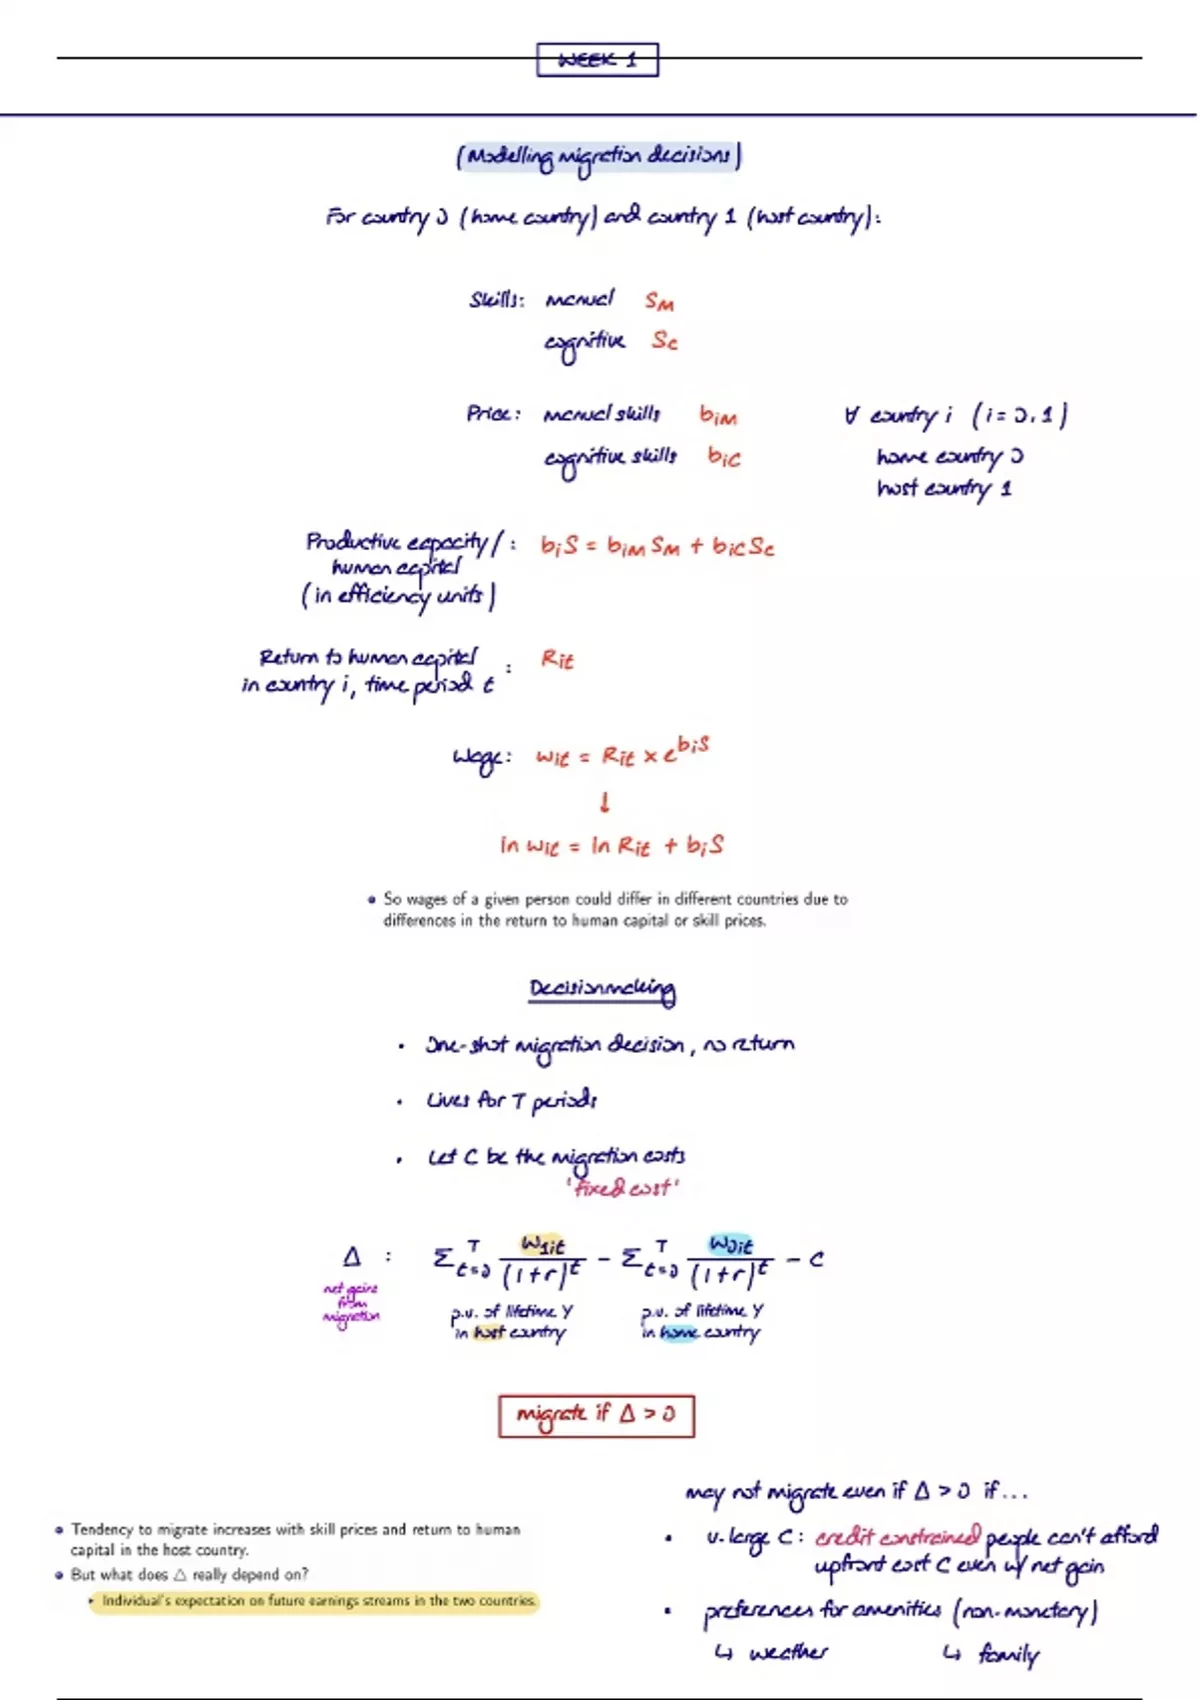 WEEK 1
(Modelling migration decisions)
For country 0 (home country) and country 1 (host country):
Skills: manual S_M
cognitive S_C
Price: manual skills b_iM ∀ country i (i = 0, 1)
cognitive skills b_iC home country 0
host country 1
Productive capacity/ : b_iS = b_iM S_M + b_iC S_C
human capital
(in efficiency units)
Return to human capital : R_it
in country i, time period t
Wage: w_it = R_it × e^(b_iS)
↓
ln w_it = ln R_it + b_iS
• So wages of a given person could differ in different countries due to
differences in the return to human capital or skill prices.
Decisionmaking
• One-shot migration decision, no return
• Lives for T periods
• Let C be the migration costs
'fixed cost'
Δ : Σ_{t=0}^T w_1it/(1+r)^t − Σ_{t=0}^T w_0it/(1+r)^t − C
net gains
from
migration
p.v. of lifetime Y
in host country
p.v. of lifetime Y
in home country
migrate if Δ > 0
• Tendency to migrate increases with skill prices and return to human
capital in the host country.
• But what does △ really depend on?
• Individual's expectation on future earnings streams in the two countries.
may not migrate even if Δ > 0 if ...
• v. large C: credit constrained people can't afford
upfront cost C even w/ net gain
• preferences for amenities (non-monetary)
↳ weather ↳ family